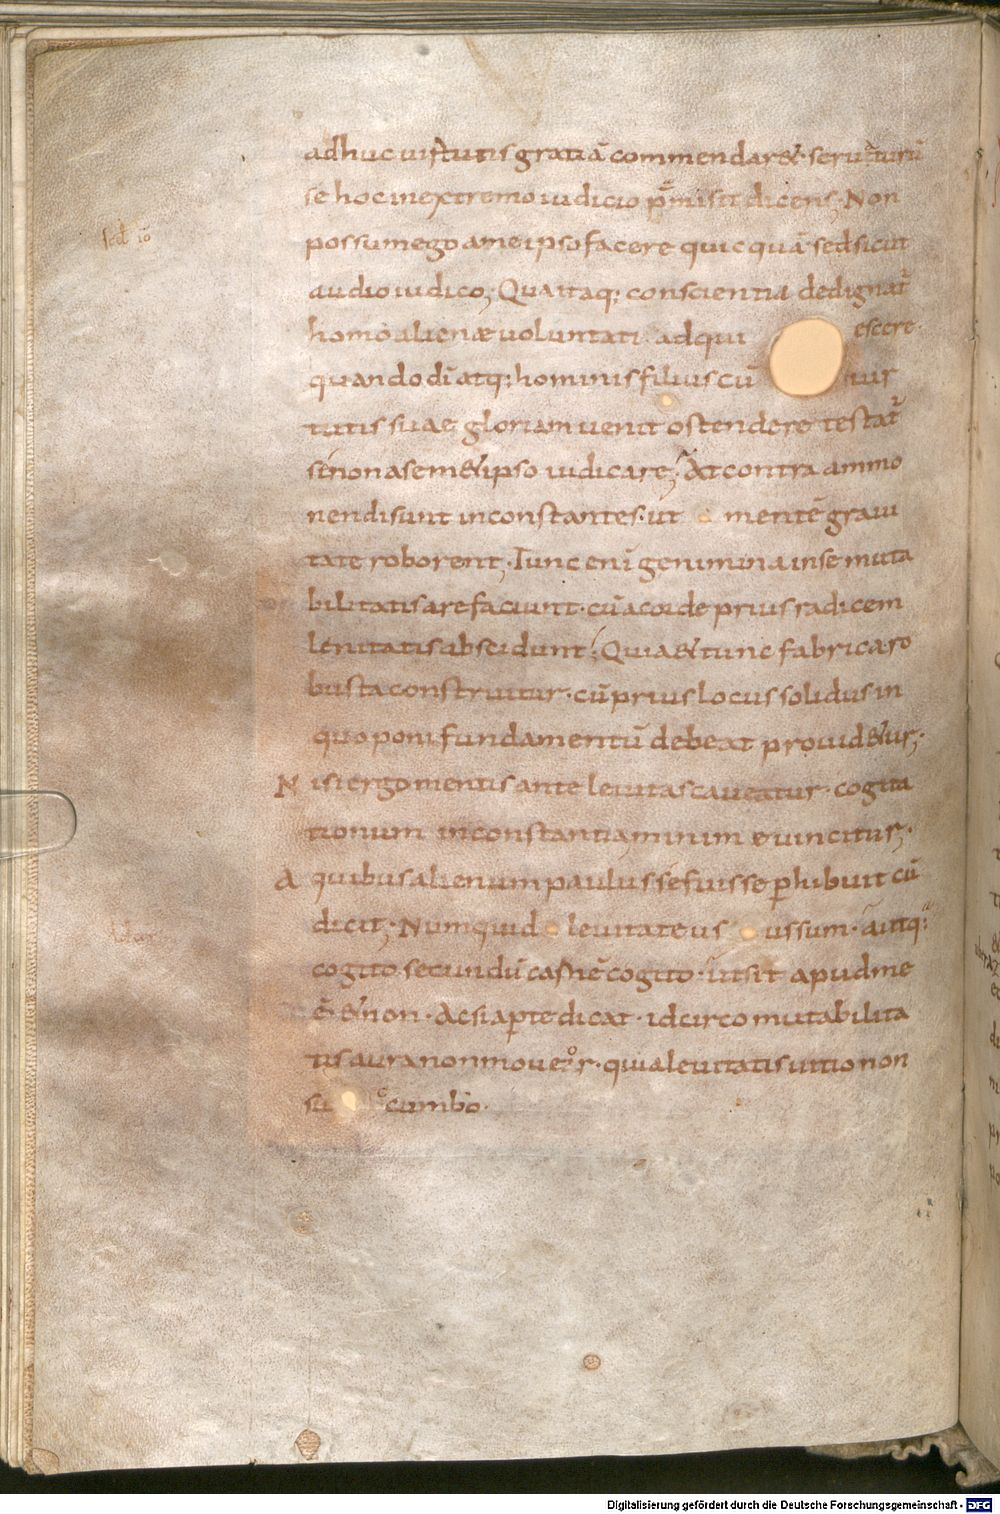 adhuc uirtutis gratiā commendar&· seruaturū
se hoc in extremo iudicio p̄misit dicens; Non
possum ego a me ipso facere quicquā· sed sicut
sc̄d iō
audio iudico; Qua itaq; conscientia dedignat̄
homo alienæ uoluntati adqui escere·
quando dī atq; hominis filius cū uir
tutis suae gloriam uenit ostendere testat̄
se non a sem&ipso iudicare; At contra ammo
nendi sunt inconstantes· ut mentē graui
tate roborent; Tunc enī genimina in se muta
bilitatis arefaciunt· cū a corde prius radicem
leuitatis abscidunt; Quia & tunc fabrica ro
busta construitur· cū prius locus solidus in
quo poni fundamentū debeat prouid&ur;
Nisi ergo mentis ante leuitas caueatur· cogita
tionum inconstantia minime uincitur;
A quibus alienum paulus se fuisse p̱hibuit cū
dicit; Numquid leuitate us us sum· aut q;
cogito secundū carnē cogito· ut sit apud me
ē & non· Ac si ap̱te dicat· idcirco mutabilita
tis aura non moueor· quia leuitatis uitio non
su ccumbo·
Digitalisierung gefördert durch die Deutsche Forschungsgemeinschaft - DFG